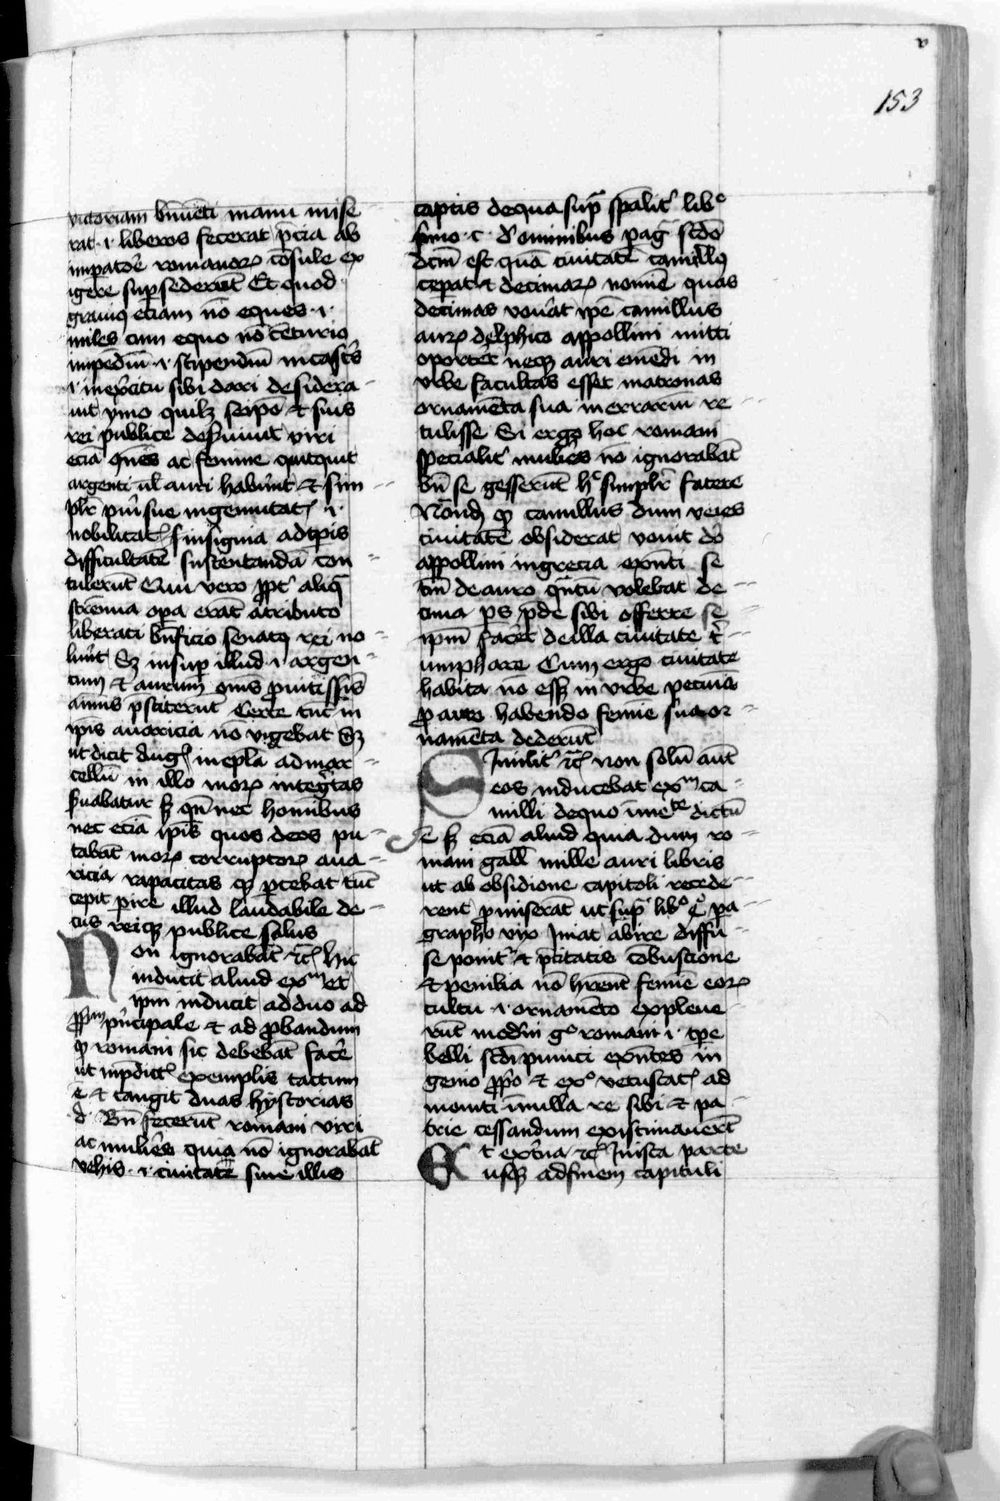 v
153
victoriam bn̄uēti manu mise
rat ·i· liberos fecerat p̄cia ab
impatōe romanoꝝ cōsule ex
igere sup̲sederūt Et quod
grauiꝰ etiam nō eques ·i·
miles cum equo nō cēturio
impēdiū ·i· stipendiū in castͥs
·i· in ex̲citu sibi dari desidera
uit ymo quilꝫ seip̄o et suis
rei publice des̲uiuit viri
eciā om̄es ac femine quitquit
argenti ul̄ auri habūnt et sim
pl̄r pūi sue ingenuitatꝭ ·i·
nobilitatꝭ insignia ad tp̄is
difficultatē sustentandā con
tulerūt Cum vero pp̲t aliq̄
strenua opa erāt atributo
liberati bn̄ficio senatꝰ rei no
lūnt Sꝫ insup̲ illud ·i· argen
tum et aurum om̄s p̲mtissīs
animis p̄stiterūt Certe tūc in
ip̄is auaricia nō vigebat Sꝫ
ut dicit Augꝰ in epl̄a ad mar
cellū in illo moꝝ integͥtas
s̲uabatur sꝫ qn̄ nec homībus
nec eciā ip̄is quos deos pu
tabāt moꝝ corruptoꝝ aua
ricia rapacitas qꝫ p̲cebat tūc
cepit p̲ire illud laudabile de
cus reiqꝫ publice salus
Non ignorabāt ⁊cꝭ hic
inducit aliud exᵐ et
ip̄m inducit ad duo ad
pp̄m p̲ncipale et ad p̲bandum
qꝫ romani sic debebāt facͤe
ut in p̄dictꝭ exemplis tactum
ē et tangit duas hystorias
·d· Bn̄ fecerūt romani viri
ac mulies quia nō ignorabāt
vehis ·i· ciuitatē siue illis
captis de qua sup̲ sp̄alitͬ libͦ
pͥmo ·c· de ominibus pagͣ scd̄o
dcm̄ est quā ciuitatē camillꝰ
ceperat et decimaꝝ nomīe quas
decimas vouāt ip̄e camillus
auꝝ delphico appollini mitti
oportet neqꝫ auri emēdi in
vrbe facultas esset matronas
ornamēta sua in errariū re
tulisse Si ergo hoc romani
specialitͬ mulies nō ignorabāt
bn̄ se gesserūt hͦ simplr̄ facere
Nōnd qꝫ camillus dum veies
ciuitatē obsiderat vouit dō
appollini in grecia exn̄ti se
tm̄ de auro quātū volebat de
cima ps p̄de sibi offerre se
ip̄m facet de illa ciuitate tͥ
umphare Cum ergo ciuitate
habita nō eēt in vrbe pecunia
p̲ auro habendo femīe sua or
namēta dederūt
Similitͬ ⁊cꝭ non solū aūt
eos inducebat exᵐ ca
milli de quo īmeᵗᵉ dictū
ē sꝫ eciā aliud quia dum ro
mani gall̄ mille auri libris
ut ab obsidione capitoli recede
rent p̲miserāt ut sup̲ libͦ ē pa
grapho vix iuuat abire diffu
se ponitͬ et p̄titatis cōbustione
et penuria nō hr̄ent femīe eoꝝ
cultu ·i· ornamēto expleue
rūt modūi gͦ romani ·i· tp̄e
belli scd̄i punici exn̄tes in
genio pp̄o et exͦ vetustatꝭ ad
moniti ī nulla re sibi et pa
trie cessandum existimauerūt
Et ext̲na ⁊cꝭ In ista parte
usqꝫ ad finem capituli